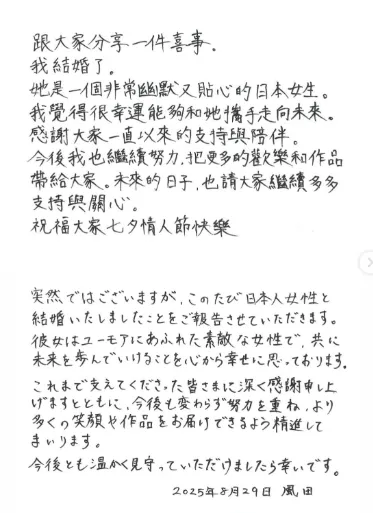 跟大家分享一件喜事。
我結婚了。
她是一個非常幽默又貼心的日本女生。
我覺得很幸運能夠和她攜手走向未來。
感謝大家一直以來的支持與陪伴。
今後我也繼續努力,把更多的歡樂和作品
帶給大家。未來的日子,也請大家繼續多多
支持與關心。
祝福大家七夕情人節快樂
突然ではございますが、このたび日本人女性と
結婚いたしましたことをご報告させていただきます。
彼女はユーモアにあふれた素敵な女性で、共に
未来を歩んでいけることを心から幸せに思っております。
これまで支えてくださった皆さまに深く感謝申し上
げますとともに、今後も変わらず努力を重ね、より
多くの笑顔や作品をお届けできるよう精進して
まいります。
今後とも温かく見守っていただけましたら幸いです。
2025年8月29日 風田